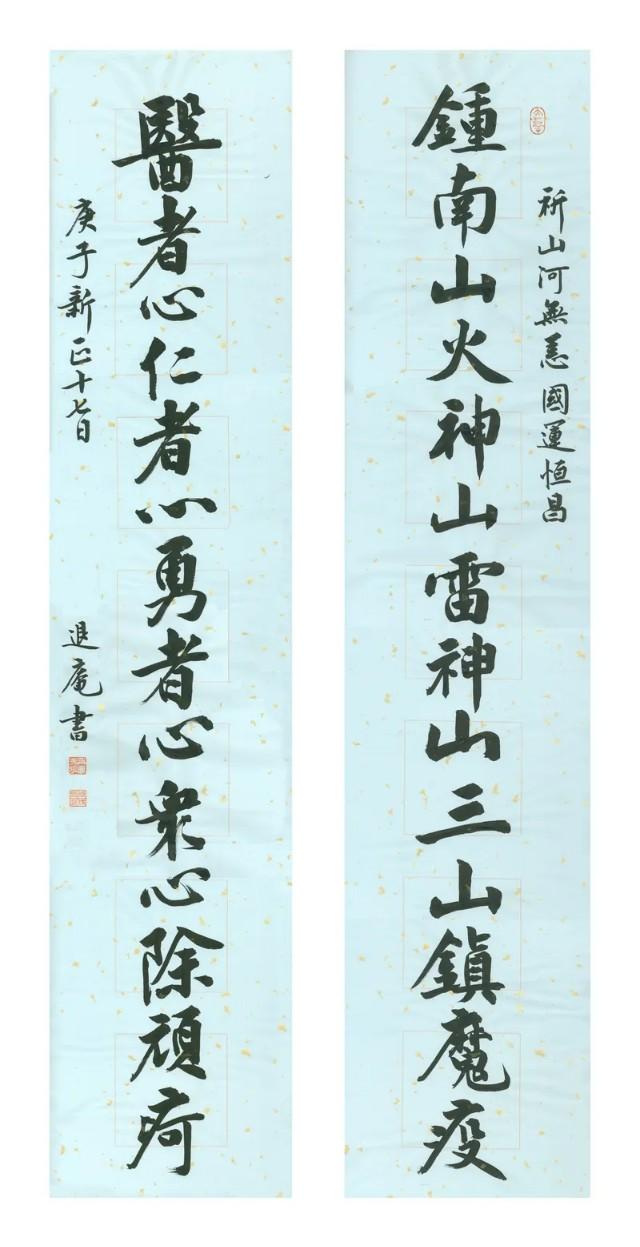 祈山河無恙國運恒昌
鍾南山火神山雷神山三山鎮魔疫
醫者心仁者心勇者心衆心除頑疴
庚子新正十七日
退庵書